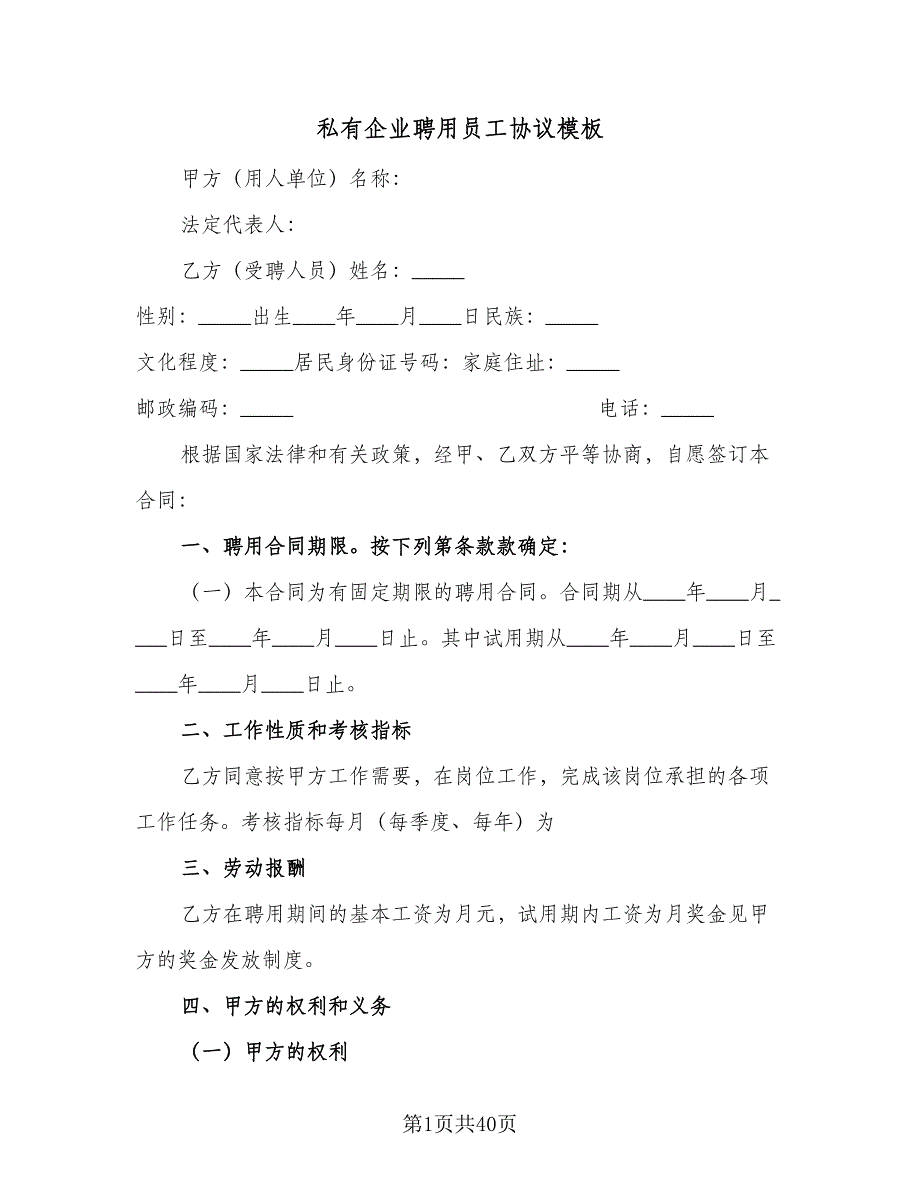 私有企业聘用员工协议模板
甲方（用人单位）名称：
法定代表人：
乙方（受聘人员）姓名：_____
性别：_____出生____年____月____日民族：_____
文化程度：_____居民身份证号码：家庭住址：_____
邮政编码：_____ 电话：_____
根据国家法律和有关政策，经甲、乙双方平等协商，自愿签订本
合同：
一、聘用合同期限。按下列第条款款确定：
（一）本合同为有固定期限的聘用合同。合同期从____年____月_
___日至____年____月____日止。其中试用期从____年____月____日至
____年____月____日止。
二、工作性质和考核指标
乙方同意按甲方工作需要，在岗位工作，完成该岗位承担的各项
工作任务。考核指标每月（每季度、每年）为
三、劳动报酬
乙方在聘用期间的基本工资为月元，试用期内工资为月奖金见甲
方的奖金发放制度。
四、甲方的权利和义务
（一）甲方的权利
第1页共40页